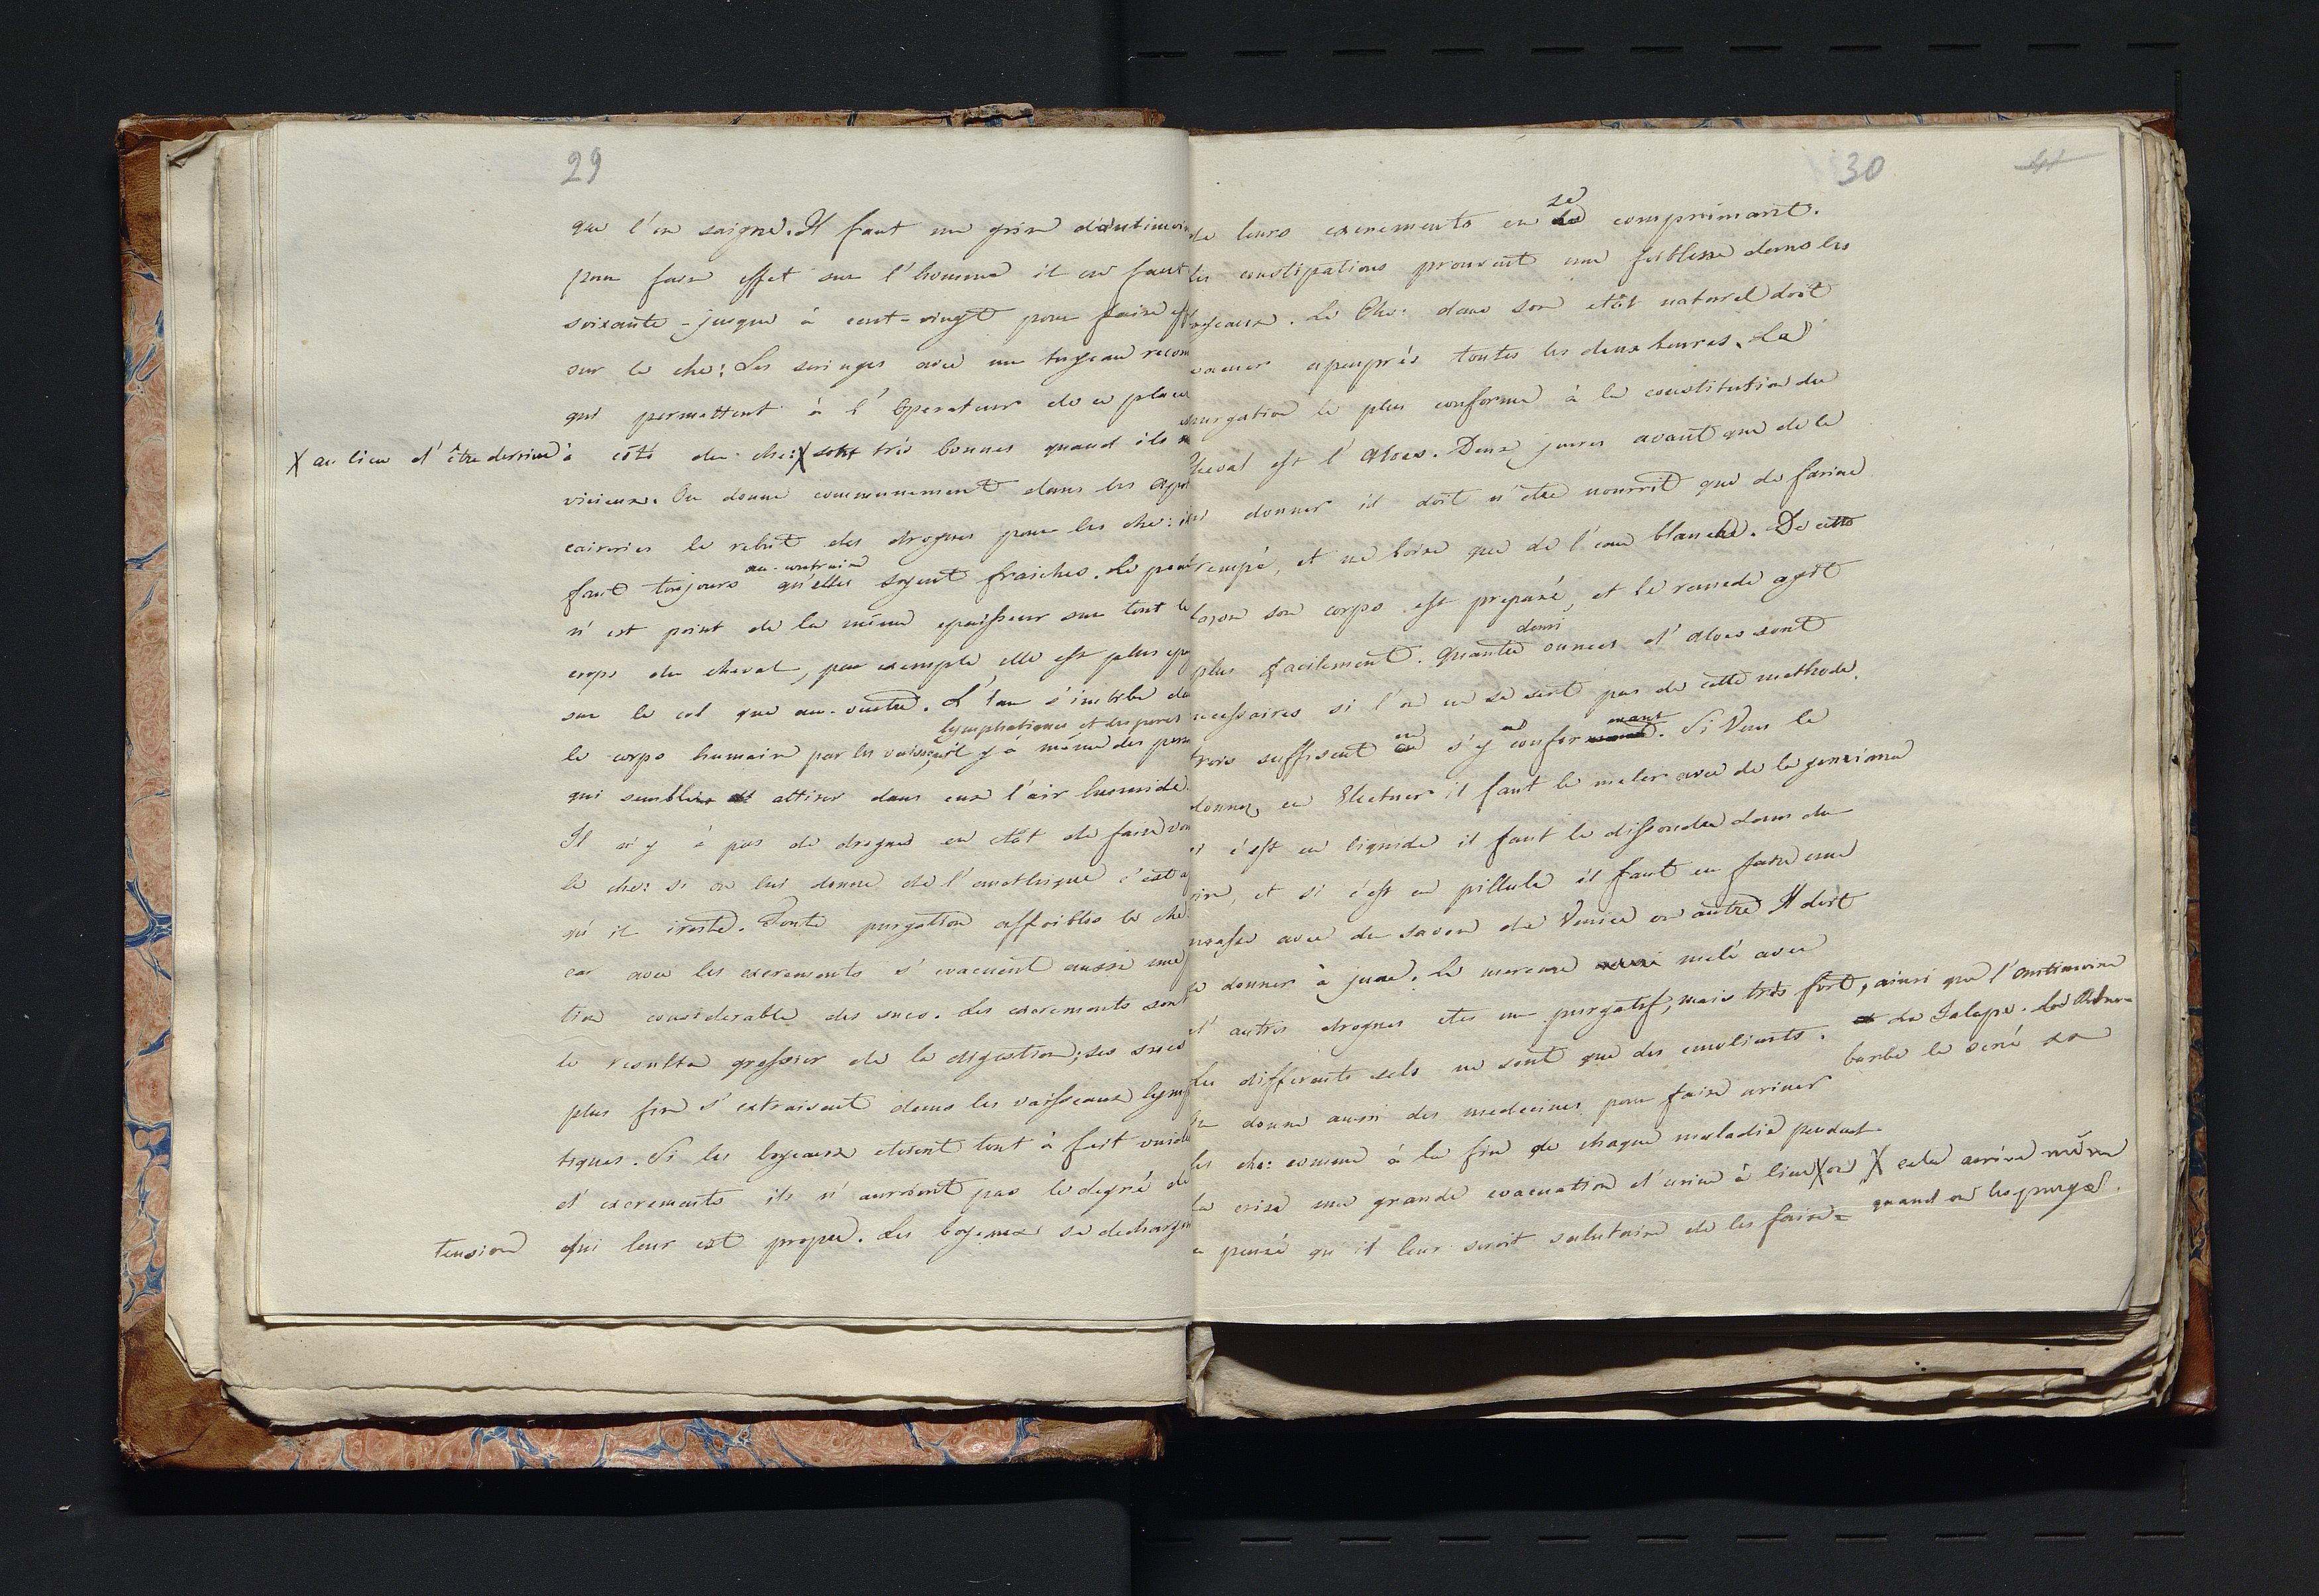 29
que l'on saigne. Il faut un grin d'antimoi
pour faire effet sur l'homme il en faut
soixante - jusque à cent-vingt pour faire eff
sur le che: Les seringes avec un tuyeau recou
qui permettent à l'operateur de ce place
X au lieu d'être derriere à côté du che: X sont très bonnes quand ils
vicieux. On donne communement dans les apo
caireries le rebut des drogues pour les che: il
faut toujours au-contraire qu'elles soyent fraiches. La peau
n'est point de la même epaisseur sur tout le
corps du cheval, par exemple, elle est plus epa
sur le col que au-ventre. L'eau s'imbibe da
lymphatiques et des pores
le corps humain par les vaiss; il y à même des pers
qui semblent attirer dans eux l'air humide.
Il n'y à pas de drogues en etât de faire vom
le che: si on lui donne de l'emethique c'est a
qu'il irrite. Toute purgation affoiblis le che:
car avec les excrements s'evacuent aussi une
tion considerable des sucs. Les excrements sont
le resulta grossier de la digestion; ses sucs
plus fins s'extraisent dans les vaisseaux lymp
tiques. Si les boyeaux etoient tout à fait vuide
d'excrements ils n'auroient pas le degré de
tension qui leur est propre. Les boyeaux se dechargen
30
de leurs excrements en se comprimant.
Les constipations prouvent une foiblesse dans les
boyeaux. Le Che: dans son etât naturel doit
evacuer apeuprès toutes les deux heures. La
purgation la plus conforme à la constitution du
Cheval est l'Aloes. Deux jours avant que de le
lui donner il doit n'etre nourrit que de farine
trempé, et ne boire que de l'eau blanche. De cette
façon son corps est preparé, et le remede agit
plus facilement. Quantre demi ounces d'aloes sont
necessaires si l'on ne se sert pas de cette methode.
trois suffisent en s'y conformant. Si Vous le
donnez en Electuer il faut le meler avec de la genziana
si c'est en liquide il faut le dissoudre dans du
vin, et si c'est en pillule il faut en faire une
masse avec du savon de Venise ou autre Il doit
se donner à june. Le mercure melé avec
d'autres drogues etes un purgatif, mais très fort, ainsi que l'antimoine
Les differents sels ne sont que des emolients. de Jalape. La Rhu-
barbe le séné
On donne aussi des medecines pour faire uriner
les che: comme à la fin de chaque maladie pendant
la crise une grande evacuation d'urine à lieu X on X cela arrive même
quand on les purge.
a pensé qu'il leur seroit salutaire de les faire